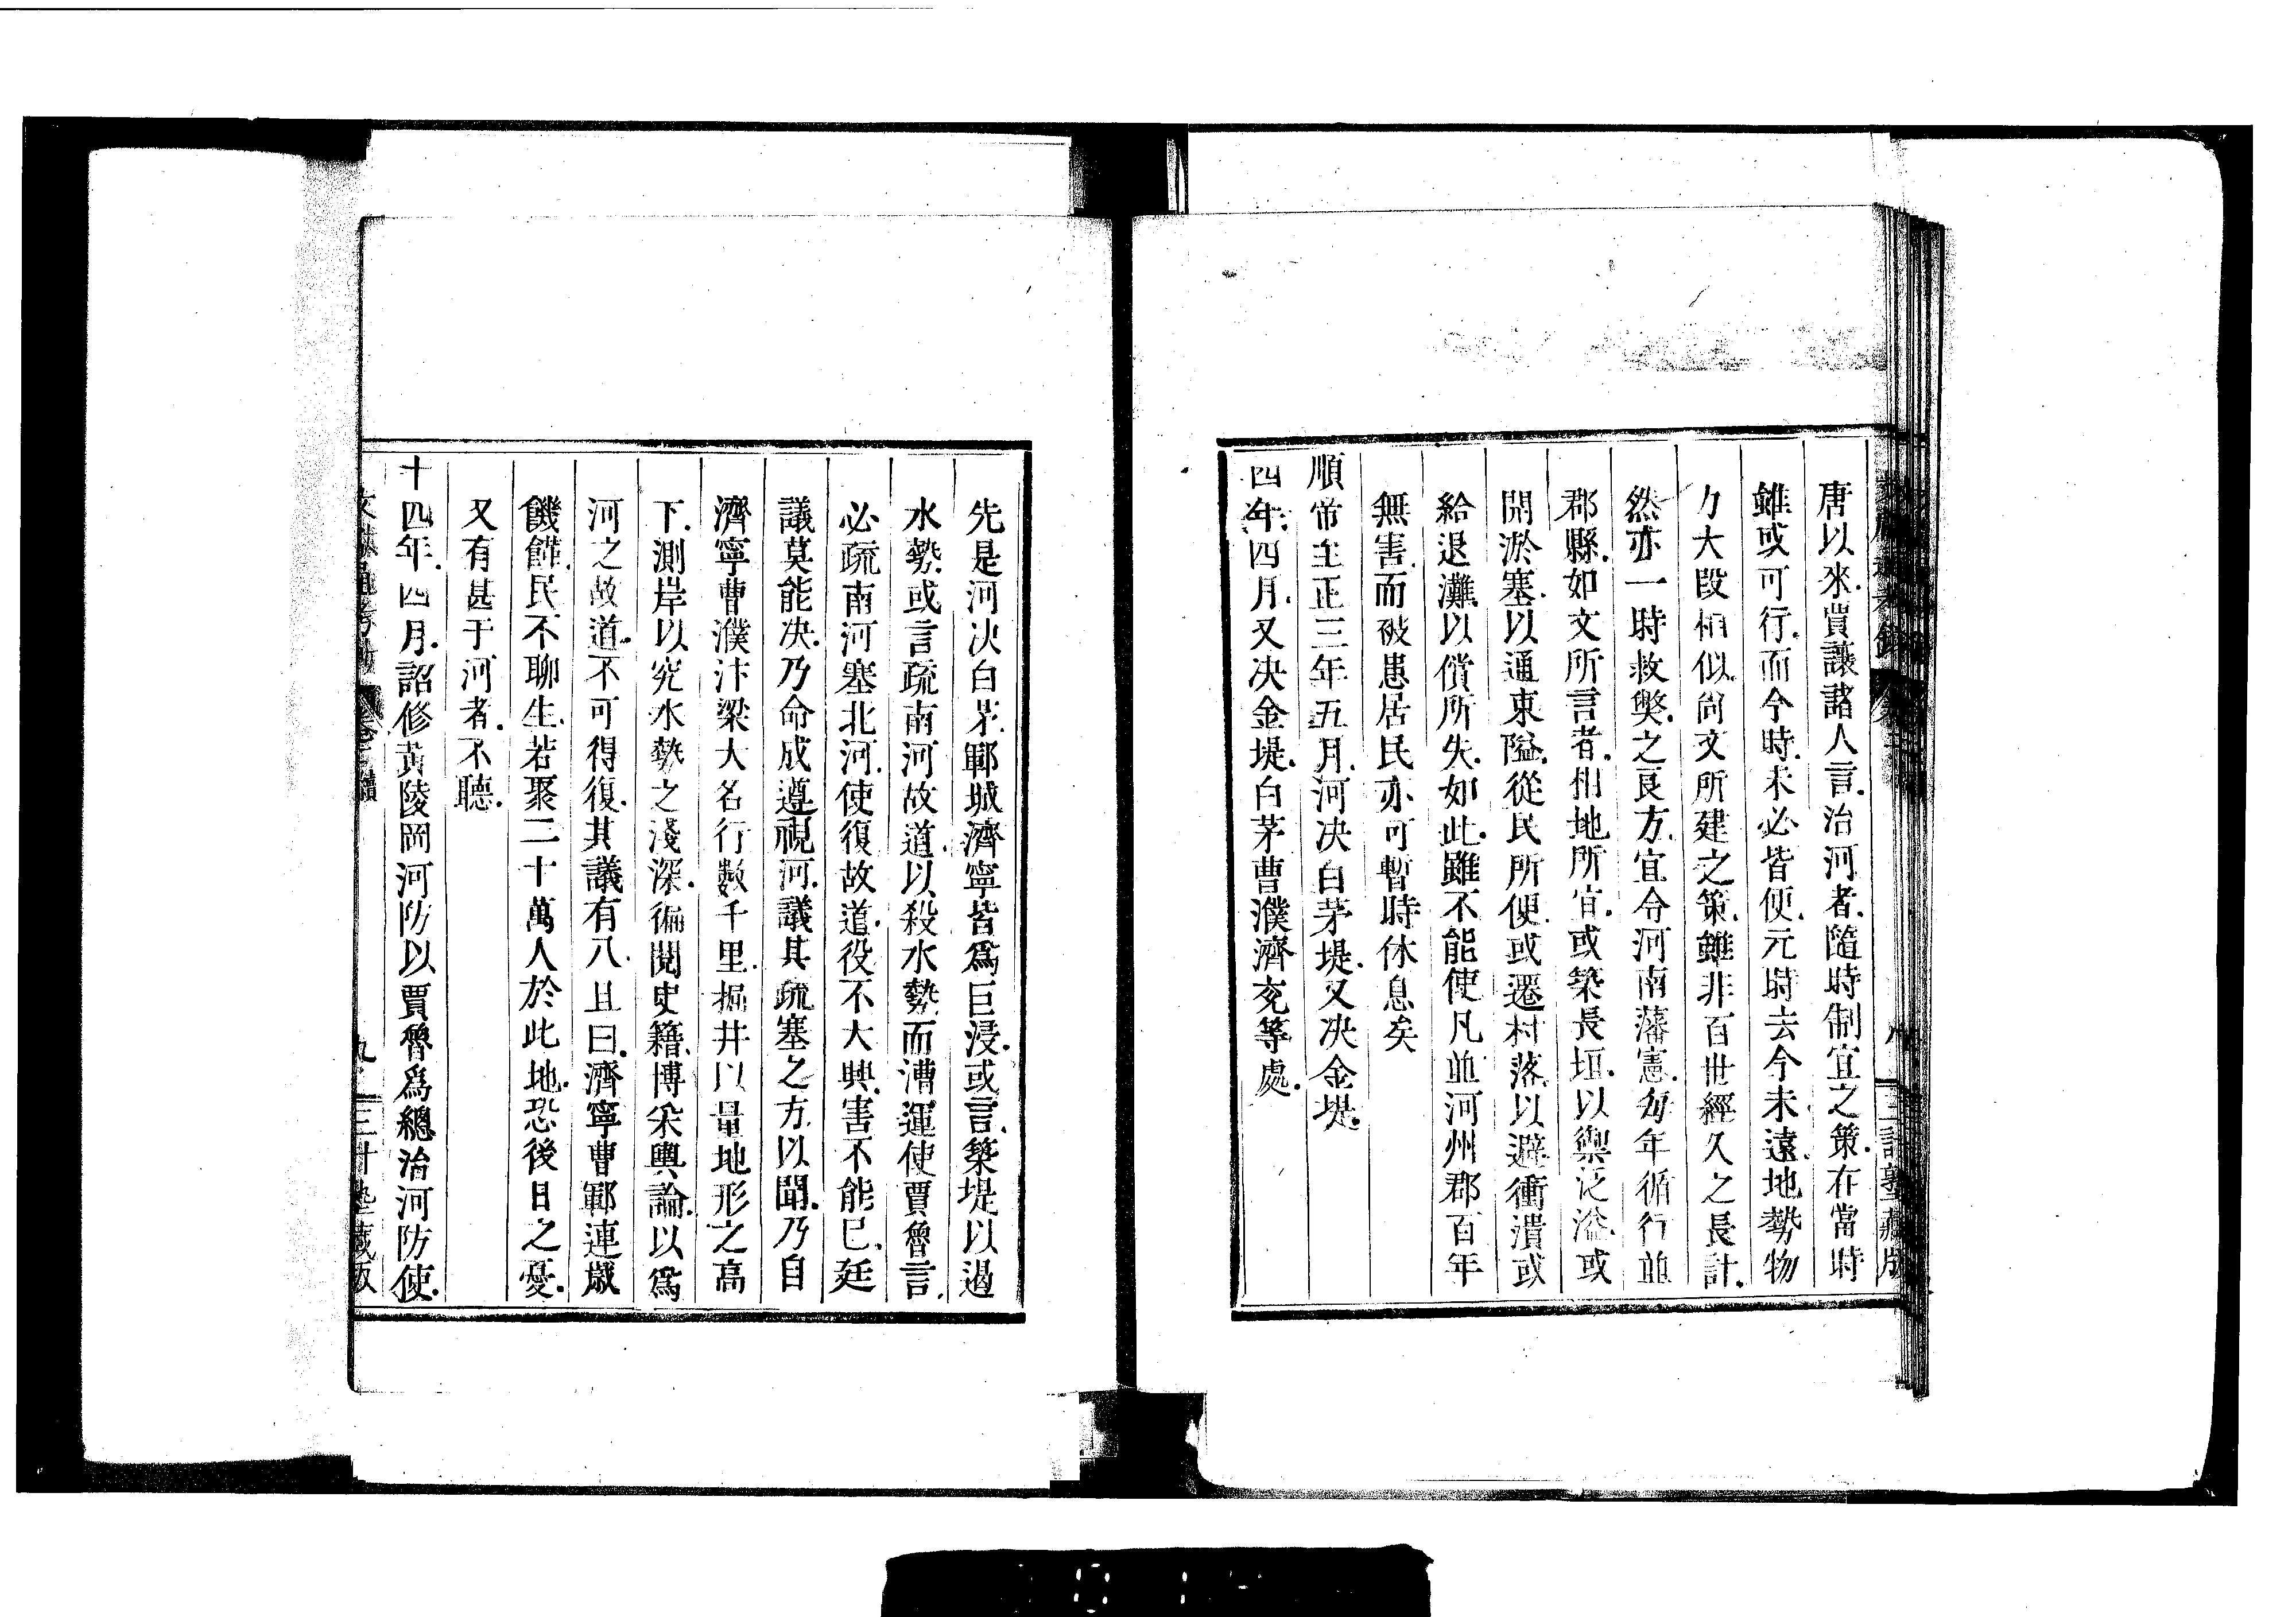 唐以來賈讓諸人言治河者隨時制宜之策在當時
雖或可行而今時未必皆便元時去今未遠地勢物
力大段相似尚文所建之策雖非百世經久之長計
然亦一時救獘之良方宜令河南藩憲每年循行並
郡縣如文所言者相地所宜或築長垣以禦泛溢或
開淤塞以通東隘從民所便或遷村落以避衝潰或
給退灘以償所失如此雖不能使凡並河州郡百年
無害而被患居民亦可暫時休息矣
順帝至正三年五月河决白茅堤又决金堤
四年四月又决金堤白茅曹濮濟兗等處
先是河决白茅鄆城濟寧皆爲巨浸或言築堤以遏
水勢或言疏南河故道以殺水勢而漕運使賈魯言
必疏南河塞北河使復故道役不大興害不能已廷
議莫能决乃命成遵視河議其疏塞之方以聞乃自
濟寧曹濮汴梁大名行數千里掘井以量地形之高
下測岸以究水勢之淺深徧閱史籍博采輿論以爲
河之故道不可得復其議有八且曰濟寧曹鄆連歲
饑饉民不聊生若聚二十萬人於此地恐後日之憂
又有甚于河者不聽
十四年四月詔修黃陵岡河防以賈魯爲總治河防使